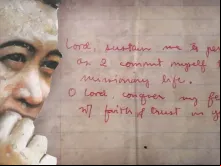 Lord, sustain me to
as I commit myself
missionary life.
O Lord, conquer my
w/ faith & trust in